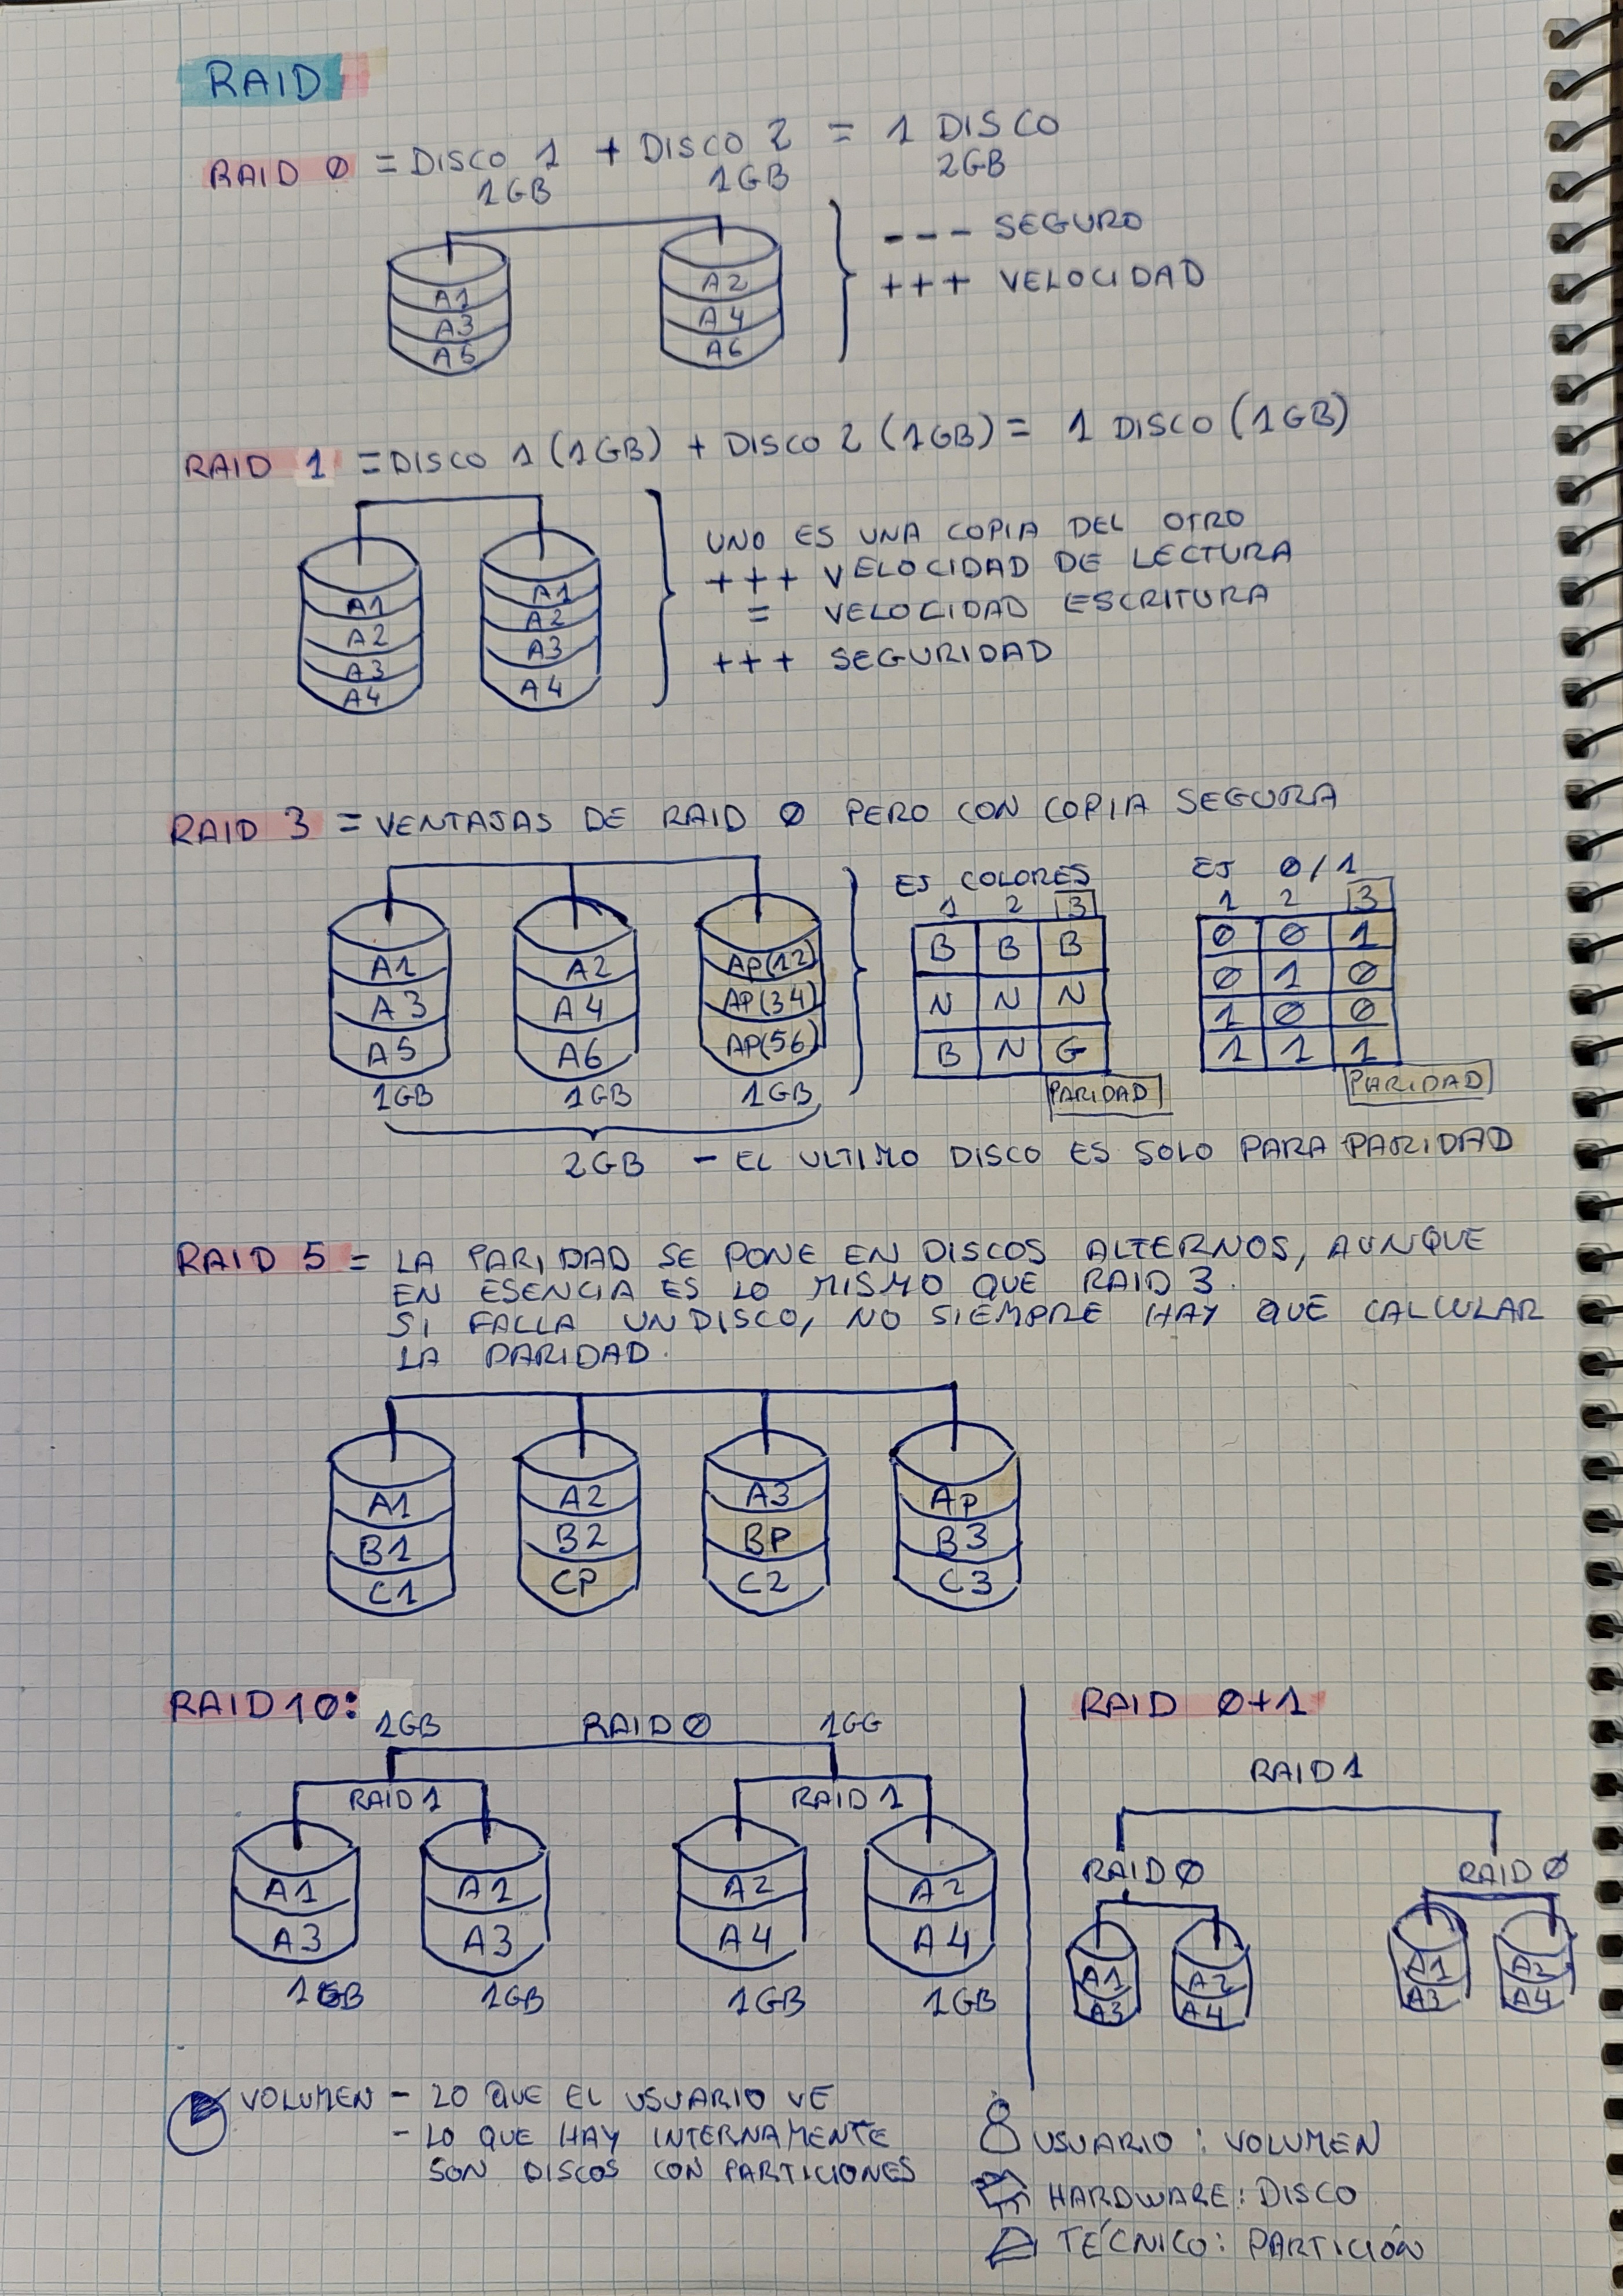 RAID
RAID 0 = DISCO 1 + DISCO 2 = 1 DISCO
1GB 1GB 2GB
--- SEGURO
+++ VELOCIDAD
A1 A2
A3 A4
A5 A6
RAID 1 = DISCO 1 (1GB) + DISCO 2 (1GB) = 1 DISCO (1GB)
UNO ES UNA COPIA DEL OTRO
+++ VELOCIDAD DE LECTURA
= VELOCIDAD ESCRITURA
+++ SEGURIDAD
A1 A1
A2 A2
A3 A3
A4 A4
RAID 3 = VENTAJAS DE RAID 0 PERO CON COPIA SEGURA
A1 A2 AP(12)
A3 A4 AP(34)
A5 A6 AP(56)
1GB 1GB 1GB
EJ COLORES
1 2 3
B B B
N N N
B N G
PARIDAD
EJ 0/1
1 2 3
0 0 1
0 1 0
1 0 0
1 1 1
PARIDAD
2GB - EL ULTIMO DISCO ES SOLO PARA PARIDAD
RAID 5 = LA PARIDAD SE PONE EN DISCOS ALTERNOS, AUNQUE
EN ESENCIA ES LO MISMO QUE RAID 3.
SI FALLA UN DISCO, NO SIEMPRE HAY QUE CALCULAR
LA PARIDAD.
A1 A2 A3 AP
B1 B2 BP B3
C1 CP C2 C3
RAID 10:
1GB RAID 0 1GG
RAID 1 RAID 1
A1 A1 A2 A2
A3 A3 A4 A4
1GB 1GB 1GB 1GB
RAID 0+1
RAID 1
RAID 0 RAID 0
A1 A2 A1 A2
A3 A4 A3 A4
VOLUMEN - LO QUE EL USUARIO VE
- LO QUE HAY INTERNAMENTE
SON DISCOS CON PARTICIONES
USUARIO: VOLUMEN
HARDWARE: DISCO
TÉCNICO: PARTICIÓN